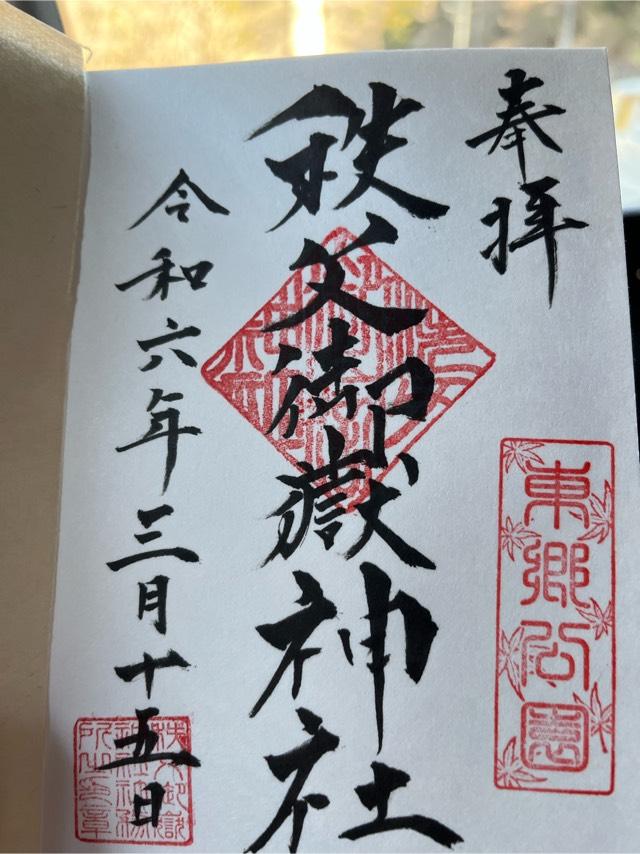 奉拝
東郷公園
秩父御嶽神社
令和六年三月十五日